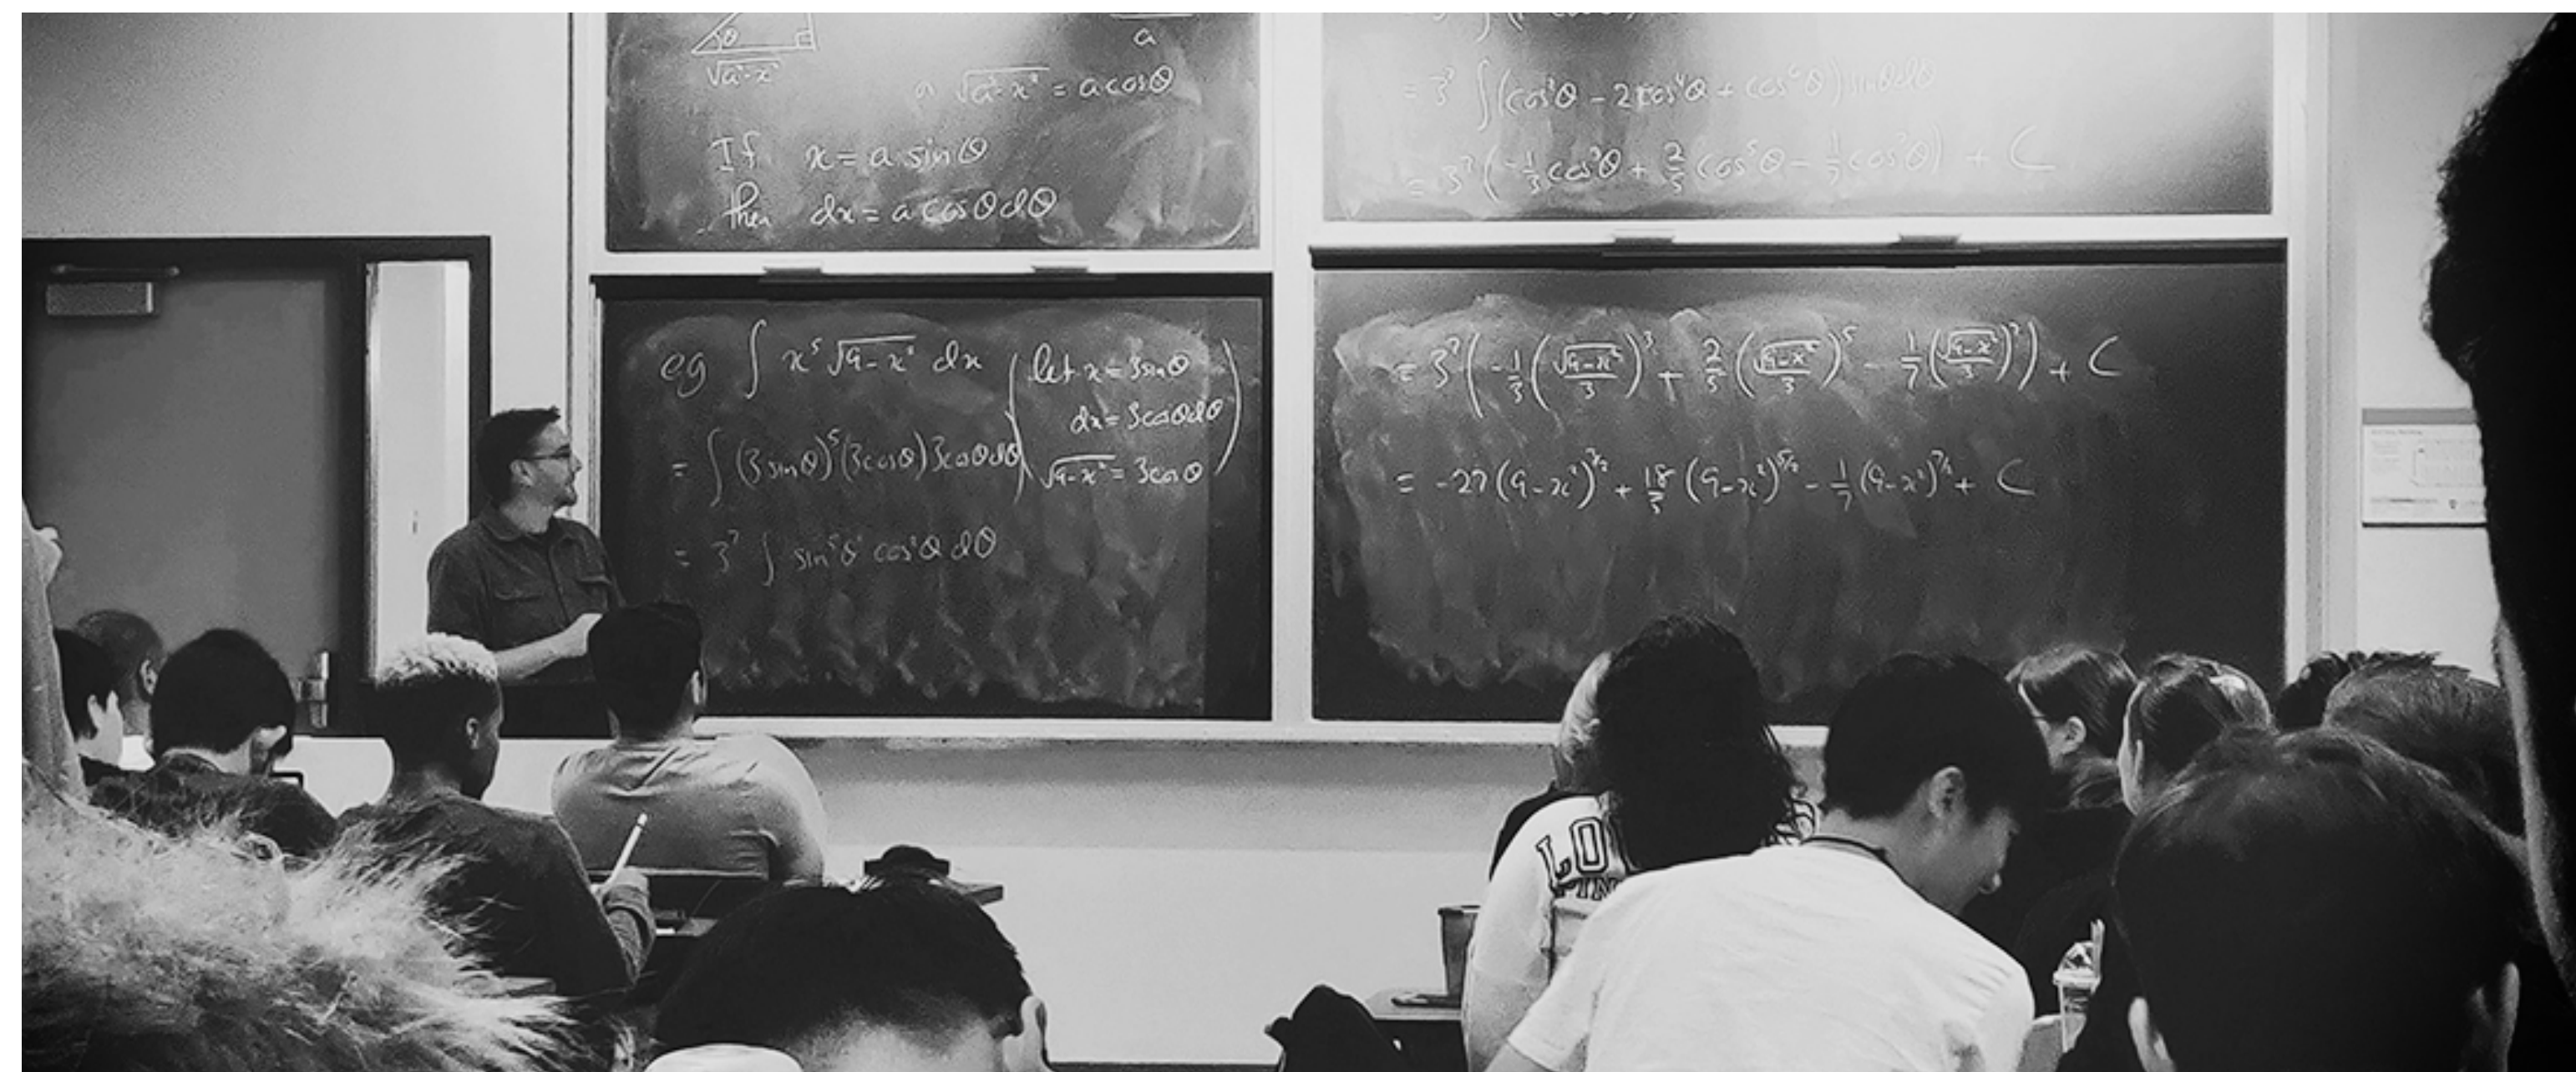 θ
√a²-x²
a
√a²-x² = a cosθ
If x = a sinθ
then dx = a cosθdθ
eg ∫ x⁵ √9-x² dx (let x = 3sinθ
dx = 3cosθdθ
√9-x² = 3cosθ)
= ∫ (3sinθ)⁵(3cosθ)3cosθdθ
= 3⁷ ∫ sin⁵θ cos²θ dθ
= 3⁷ ∫(cos²θ - 2cos⁴θ + cos⁶θ) sinθdθ
= 3⁷(-1/3 cos³θ + 2/5 cos⁵θ - 1/7 cos⁷θ) + C
= 3⁷(-1/3(√9-x²/3)³ + 2/5(√9-x²/3)⁵ - 1/7(√9-x²/3)⁷) + C
= -27(9-x²)^3/2 + 18/5 (9-x²)^5/2 - 1/7 (9-x²)^7/2 + C